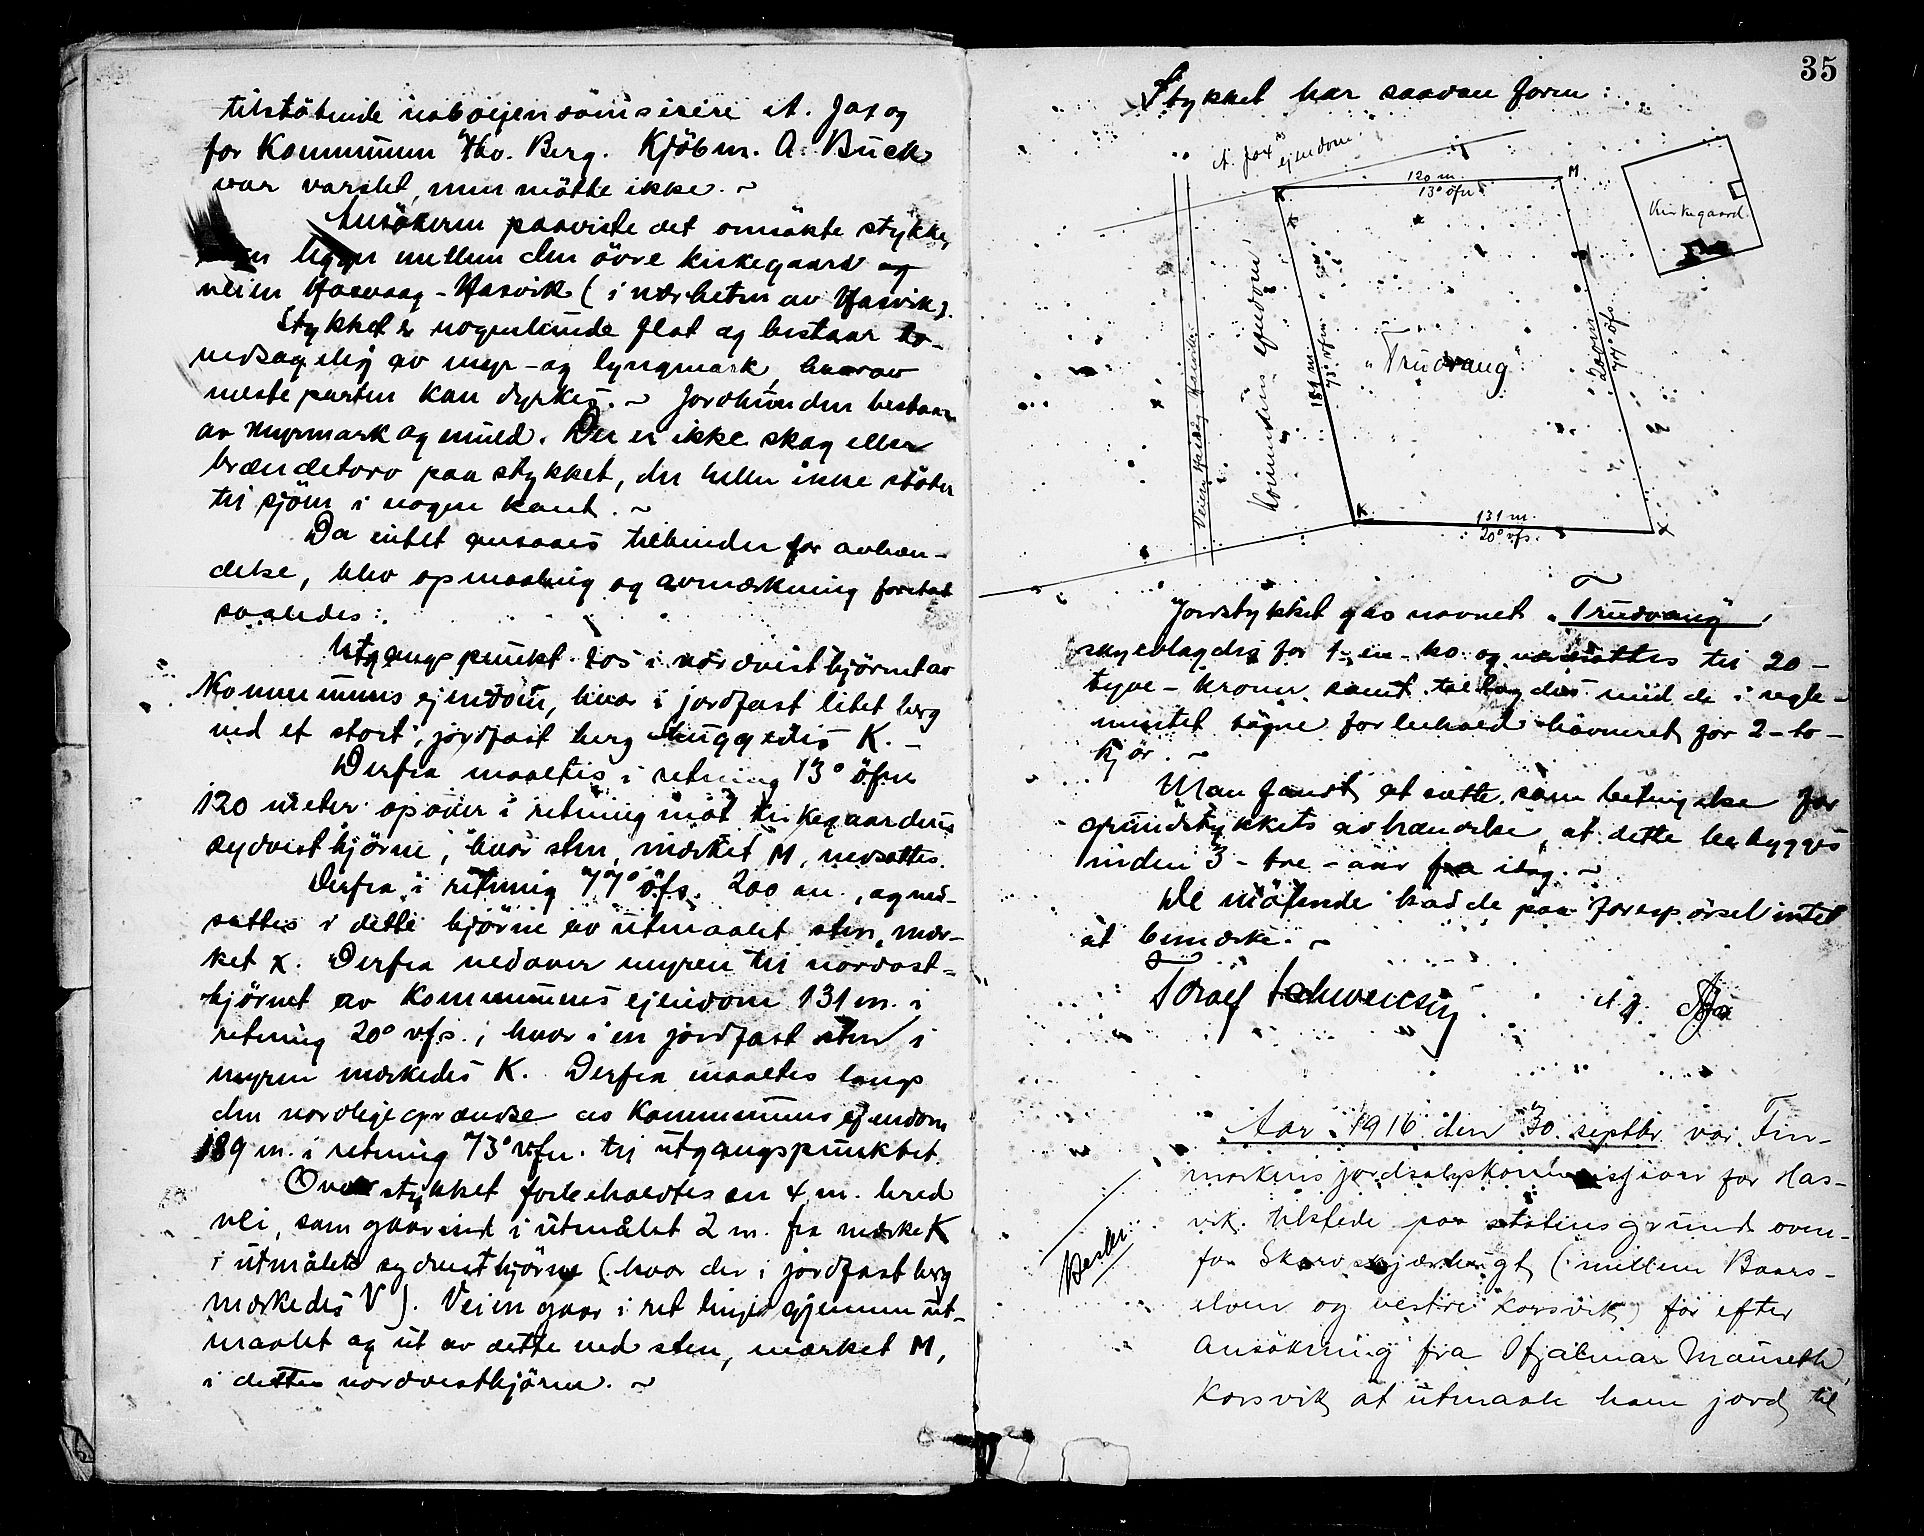 tilstötende naboeiendoms eiere A. Jax og
for Kommunen Hto. Berg. Kjöbm. A. Buck
var varslet, men mötte ikke. ~
Ansökeren paaviste det omsökte stykke,
ligger mellem den övre kirkegaard og
veien Hasvaag - Hasvik (i nærheten av Hasvik).
Stykket er nogenlunde flat og bestaar ho-
vedsagelig av myr- og lyngmark, hvorav
mesteparten kan dyrkes. ~ Jordbunden bestaar
av myrmark og muld. Der er ikke skog eller
brændetorv paa stykket, der heller ikke stöter
til sjöen i nogen kant. ~
Da intet ansaaes tilhinder for avhæn-
delse, blev opmaaling og avmærkning foretat
saaledes:
Utgangspunkt tos i nordvesthjörnet av
Kommunens ejendom, hvor i jordfast litet berg
ved et stort, jordfast berg huggedes K. -
Derfra maaltes i retning 13° öfn
120 meter opover i retning mot kirkegaardens
sydvesthjörne, hvor sten, mærket M, nedsattes.
Derfra i retning 77° öfs. 200 m., og ned-
sattes i dette hjörne av utmaalet sten, mær-
ket x. Derfra nedover myren til nordost-
hjörnet av Kommunens ejendom 131 m. i
retning 20° vfs., hvor i en jordfast sten i
myren mærkedes K. Derfra maaltes langs
den nordlige grændse av Kommunens ejendom
189 m. i retning 73° vfn. til utgangspunktet.
Over stykket forbeholdtes en 4 m. bred
vei, som gaar ind i utmålet 2 m. fra mærke K
i utmålets sydvesthjörne (hvor der i jordfast berg
mærkedes V). Veien gaar i ret linje gjennem ut-
maalet og ut av dette ved sten, mærket M,
i dettes nordvesthjörne. ~
35
Stykket har saadan form:
A. Jax's ejendom
120 m.
13° öfn
K
M
Kirkegaard
Veien Hasvåg Hasvik
Kommunens ejendom
189 m
73° vfn
"Trudvang"
200 m
77° öfs
K
131 m.
20° vfs.
X
Jordstykket gas navnet "Trudvang",
skyldlagdes for 1 - en - og værdsattes til 20 -
tyve - kroner samt tillagdes med de i regle-
mentet tagne forbehold havneret for 2 - to -
kjör. ~
Man fandt at sætte som betingelse for
grundstykkets avhændelse, at dette bebygges
inden 3 - tre - aar fra idag. ~
De mötende hadde paa forespörsel intet
at bemærke. ~
A J
Aar 1916 den 30 septbr var Fin-
markens jordsalgskommission for Has-
vik tilstede paa statens grund oven-
for Skarvskjærbugt (mellem Baars-
elven og vestre Korsvik) for efter
Ansökning fra Hjalmar Mauseth,
Korsvik at utmaale ham jord til